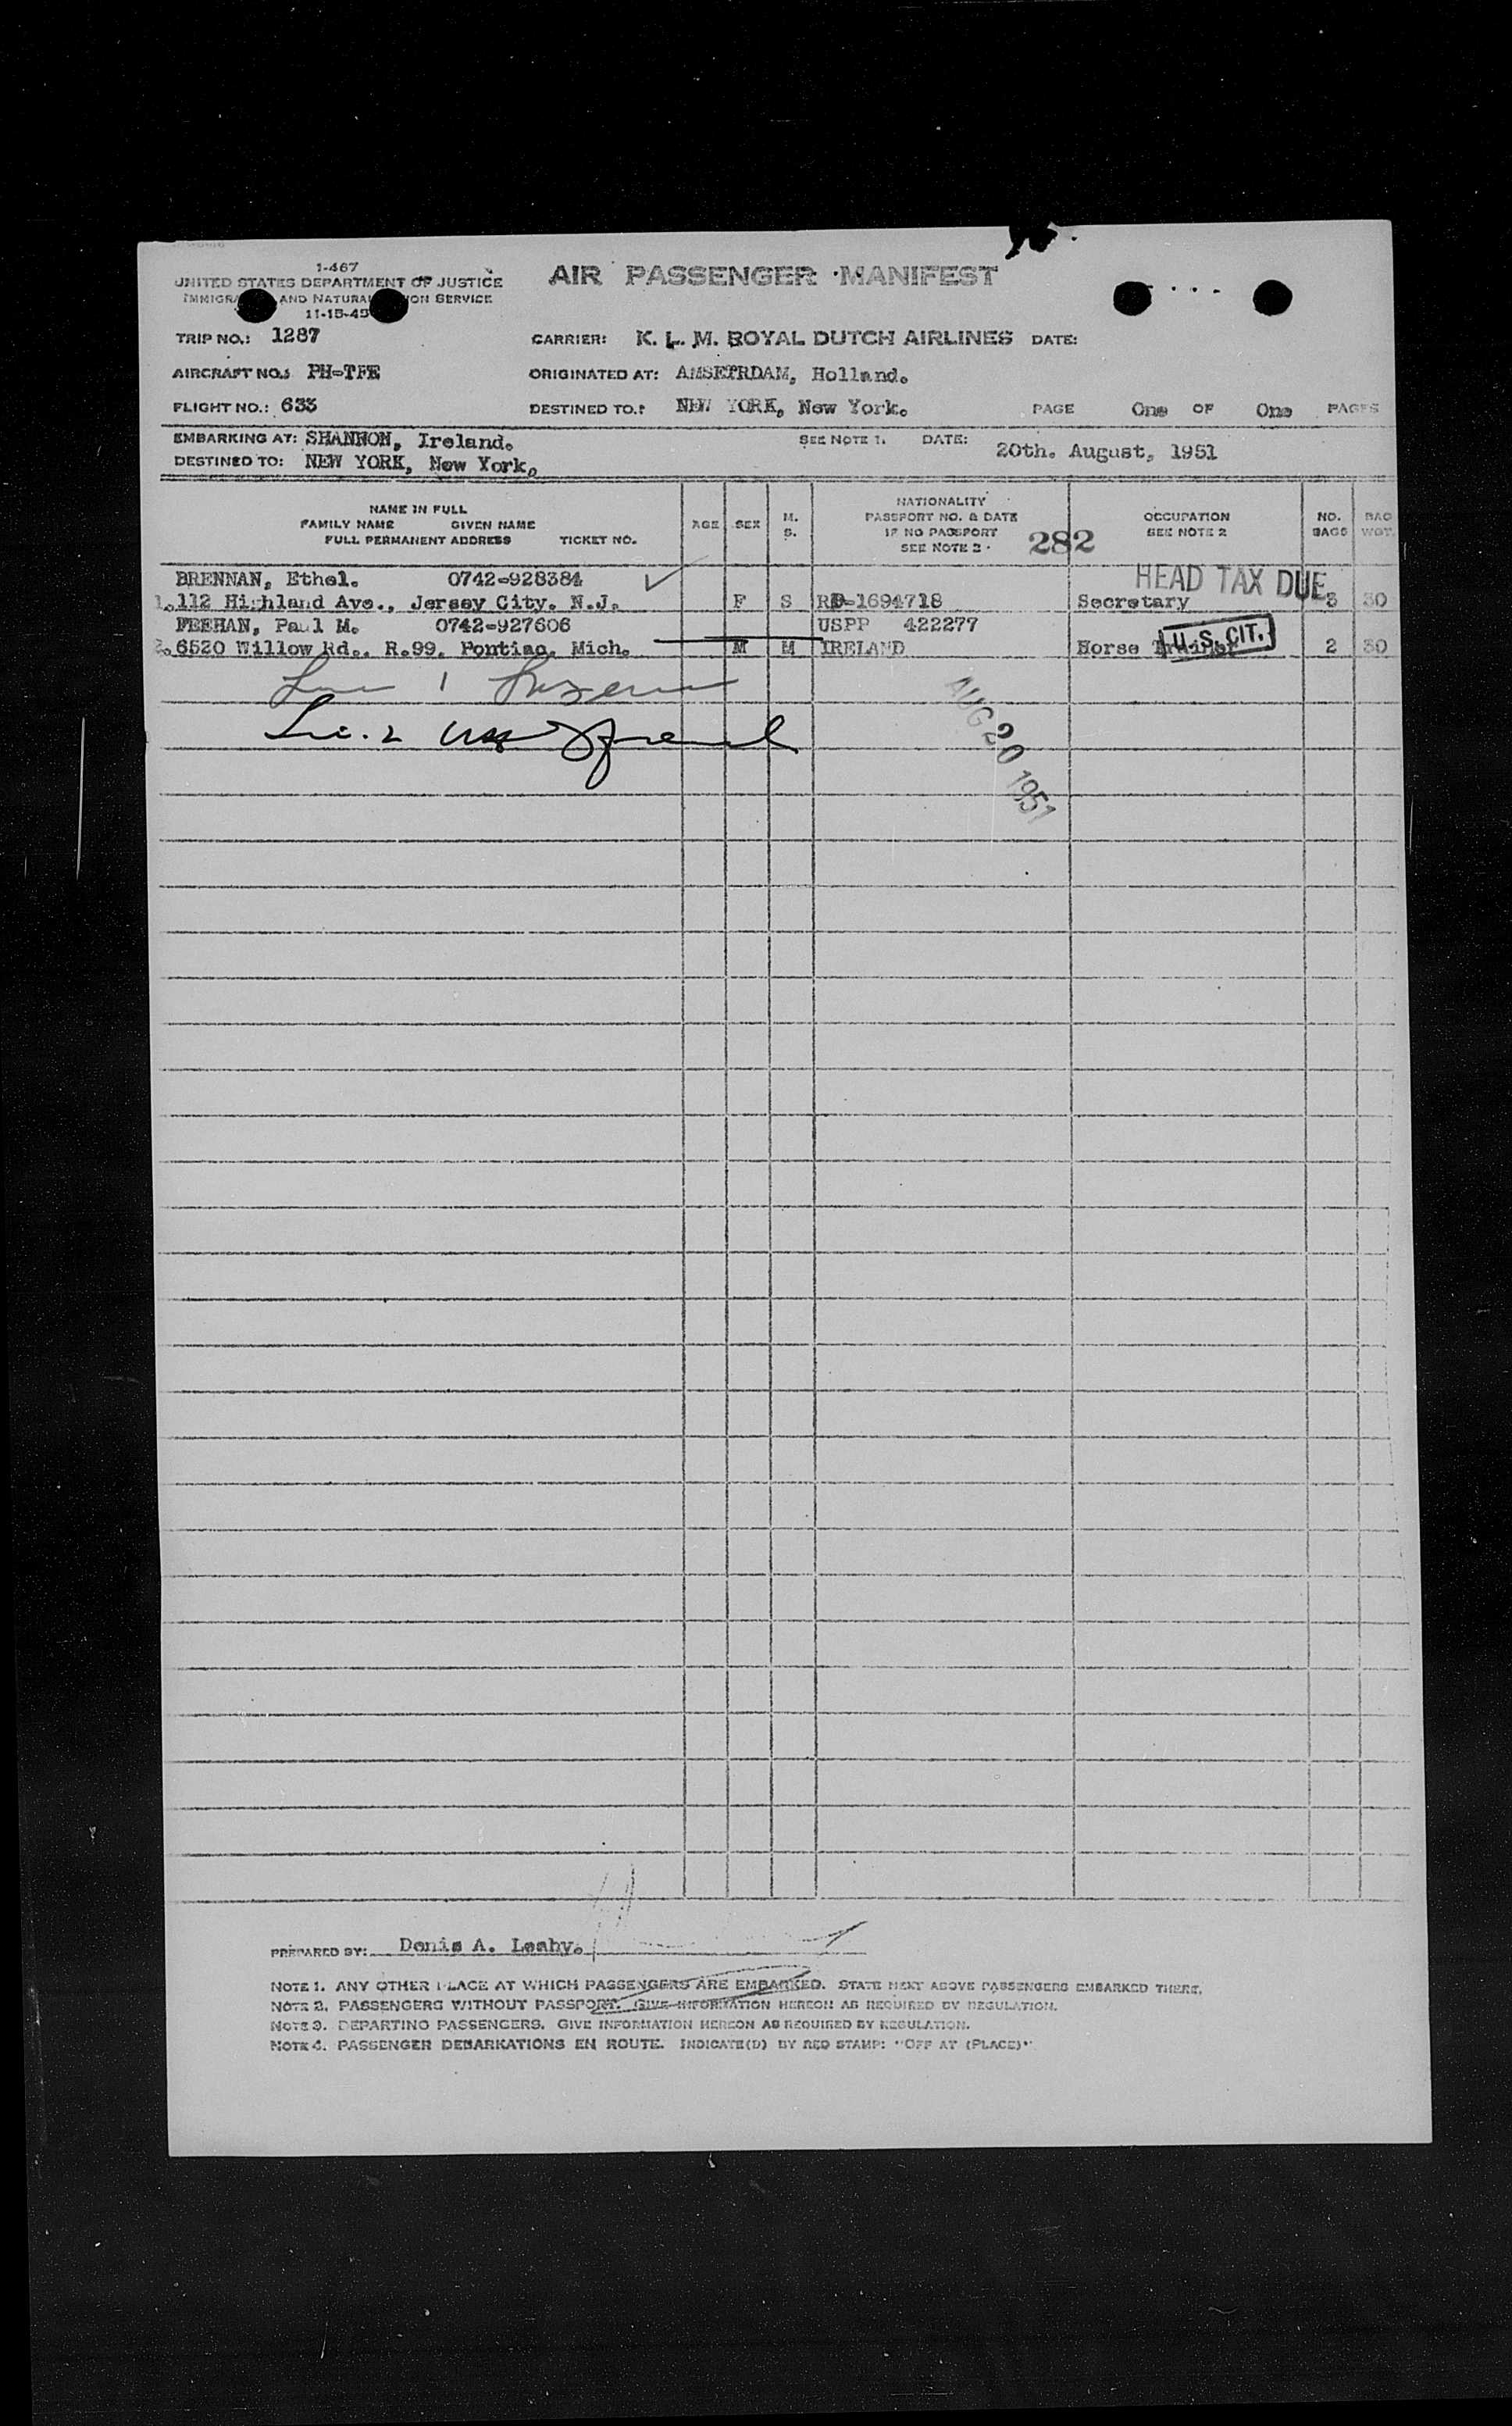 1-467
UNITED STATES DEPARTMENT OF JUSTICE
AND SERVICE
AIR PASSENGER MANIFEST
TRIP NO.: 1287
CARRIER: K. L. M. ROYAL DUTCH AIRLINES DATE:
AIRCRAFT NO.: PH-TFE
ORIGINATED AT: AMSETRDAM, Holland.
FLIGHT NO.: 633
DESTINED TO.: NEW YORK, New York.
PAGE One OF One PAGES
EMBARKING AT: SHANNON, Ireland.
SEE NOTE 1. DATE: 20th. August, 1951
DESTINED TO: NEW YORK, New York.
NAME IN FULL
FAMILY NAME GIVEN NAME
FULL PERMANENT ADDRESS TICKET NO.
AGE
SEX
M.
S.
NATIONALITY
PASSPORT NO. & DATE
IF NO PASSPORT
SEE NOTE 2
282
OCCUPATION
SEE NOTE 2
NO.
BAGS
BAG
WGT.
BRENNAN, Ethel. 0742-928384
HEAD TAX DUE
1. 112 Highland Ave., Jersey City. N.J. F S RD-1694718 Secretary 3 30
FEEHAN, Paul M. 0742-927606 USPP 422277
2. 6520 Willow Rd., R.99, Pontiac, Mich. M M IRELAND Horse Trainer 2 30
U.S. CIT.
AUG 20 1951
PREPARED BY: Denis A. Leahy.
NOTE 1. ANY OTHER PLACE AT WHICH PASSENGERS ARE EMBARKED. STATE NEXT ABOVE PASSENGERS EMBARKED THERE.
NOTE 2. PASSENGERS WITHOUT PASSPORT. GIVE INFORMATION HEREON AS REQUIRED BY REGULATION.
NOTE 3. DEPARTING PASSENGERS. GIVE INFORMATION HEREON AS REQUIRED BY REGULATION.
NOTE 4. PASSENGER DEBARKATIONS EN ROUTE. INDICATE(D) BY RED STAMP: "OFF AT (PLACE)"